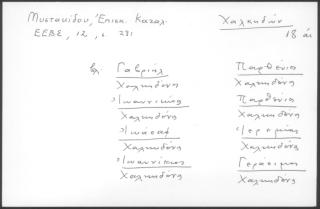 Μυστακίδου, Ἐπισκ. Καταλ.
ΕΕΒΣ, 12, σ. 231
Χαλκηδών
18 αι
βλ Γαβριήλ
Χαλκηδόνος
Ἰωαννίκιος
Χαλκηδόνος
Ἰωάσαφ
Χαλκηδόνος
Ἰωαννίκιος
Χαλκηδόνος
Παρθένιος
Χαλκηδόνος
Παρθένιος
Χαλκηδόνος
Ἱερεμίας
Χαλκηδόνος
Γεράσιμος
Χαλκηδόνος